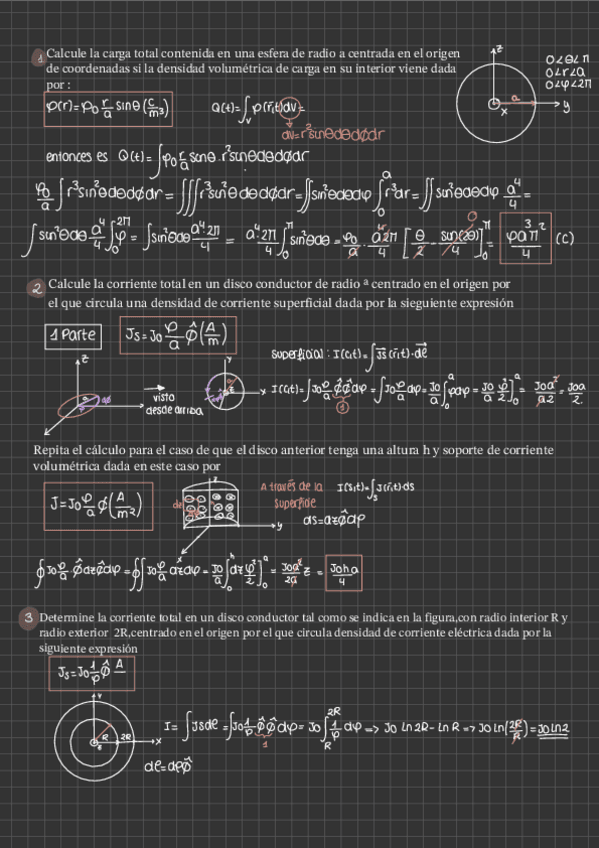 1 Calcule la carga total contenida en una esfera de radio a centrada en el origen
de coordenadas si la densidad volumétrica de carga en su interior viene dada
por :
z
a
y
x
0<θ<π
0<r<a
0<φ<2π
ρ(r)=ρ0 r/a sinθ (C/m³)
Q(t)=∫v ρ(r,t)dv=
dv=r²sinθdθdφdr
entonces es Q(t)=∫ρ0 r/a senθ·r²sinθdθdφdr
ρ0/a ∫r³sin²θdθdφdr=∫∫∫r³sin²θdθdφdr=∫∫sin²θdθdφ ∫₀ᵃ r³dr=∫∫sin²θdθdφ a⁴/4=
∫sin²θdθ a⁴/4 ∫₀²π φ=∫sin²θdθ a⁴2π/4 = a⁴·2π/4 ∫₀π sin²θdθ=
2 Calcule la corriente total en un disco conductor de radio ª centrado en el origen por
el que circula una densidad de corriente superficial dada por la sieguiente expresión
1 Parte
Js=J0 ρ/a φ̂ (A/m)
superficial: I(c,t)=∫Js(r,t)·dl
z
y
x
visto
desde arriba
I(c,t)=∫J0 ρ/a φ̂φ̂dρ=∫J0 ρ/a dρ=J0/a ∫₀ᵃ ρdρ=J0/a ρ²/2]₀ᵃ=J0a²/a2=J0a/2.
1
Repita el cálculo para el caso de que el disco anterior tenga una altura h y soporte de corriente
volumétrica dada en este caso por
J=J0 ρ/a φ̂ (A/m²)
y
x
A través de la
superficie
I(s,t)=∫s J(r,t)·ds
ds=dzφ̂dρ
∮J0 ρ/a φ̂dzφ̂dρ=∫∫J0 ρ/a dzdρ=J0/a ∫₀ʰ dz ρ²/2]₀ᵃ=J0a²/2a z = J0ha/4
3 Determine la corriente total en un disco conductor tal como se indica en la figura,con radio interior R y
radio exterior 2R,centrado en el origen por el que circula densidad de corriente eléctrica dada por la
siguiente expresión
Js=J0 1/ρ φ̂ A
Y
R
2R
x
z
I=∫Jsdl=∫J0 1/ρ φ̂φ̂dρ=J0 ∫R 2R 1/ρ dρ=> J0 Ln 2R-Ln R=> J0 Ln(2R/R)=J0Ln2
1
dl=dρφ̂